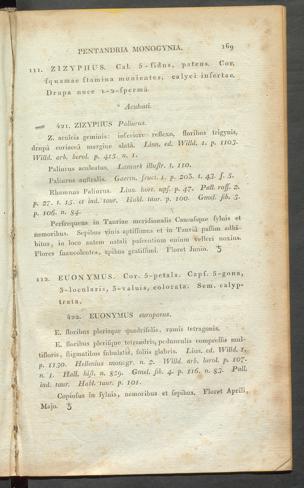 PENTANDRIA MONOGYNIA. 169
111. ZIZYPHUS. Cal. 5-fidus, patens. Cor.
squamae stamina munientes, calyci insertae.
Drupa nuce 1-2-sperma.
* Aculeati.
421. ZIZYPHUS Paliurus.
Z. aculeis geminis: inferiore reflexo, floribus trigynis,
drupa coriacea margine alata. Linn. ed. Willd. 1. p. 1103.
Willd. arb. berol. p. 413. n. 1.
Paliurus aculeatus. Lamark illustr. t. 110.
Paliurus australis. Gaertn. fruct. 1. p. 203. t. 43. f. 5.
Rhamnus Paliurus. Linn. hort. ups. p. 47. Pall. ross. 2.
p. 27. t. 15. et ind. taur. Habl. taur. p. 100. Gmel. sib. 3.
p. 106. n. 84.
Perfrequens in Tauriae meridionalis Caucasique sylvis et
nemoribus. Sepibus vivis aptissimus et in Tauria passim adhi-
bitus, in loco autem natali parientium ovium velleri noxius.
Flores suaveolentes, apibus gratissimi. Floret Junio. ♄
112. EUONYMUS. Cor. 5-petala. Caps. 5-gona,
5-locularis, 5-valvis, colorata. Sem. calyp-
trata.
422. EUONYMUS europaeus.
E. floribus plerisque quadrifidis, ramis tetragonis.
E. floribus plerisque tetrandris, pedunculis compressis mul-
tifloris, stigmatibus subulatis, foliis glabris. Linn. ed. Willd. 1.
p. 1130. Hellenius monogr. n. 2. Willd. arb. berol. p. 107.
n. 1. Hall. hist. n. 829. Gmel. sib. 4. p. 116. n. 83. Pall.
ind. taur. Habl. taur. p. 101.
Copiosus in sylvis, nemoribus et sepibus. Floret Aprili,
Majo. ♄